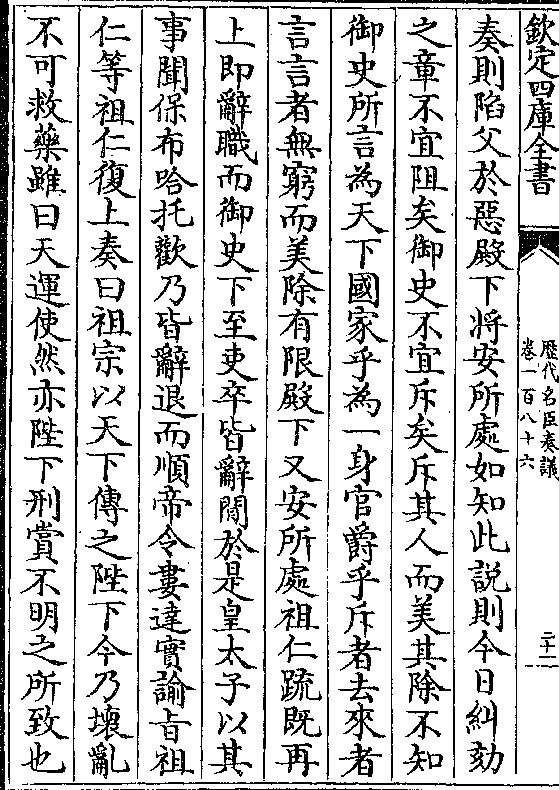 欽定四庫全書
歴代名臣奏議
卷一百八十六
二十二
奏則陷父於惡殿下將安所處如知此説則今日糾劾
之章不宜阻矣御史不宜斥矣斥其人而美其除不知
御史所言為天下國家乎為一身官爵乎斥者去來者
言言者無窮而美除有限殿下又安所處祖仁䟽既再
上即辭職而御史下至吏卒皆辭闗於是皇太子以其
事聞保布哈托歡乃皆辭退而順帝令婁達實諭㫖祖
仁等祖仁復上奏曰祖宗以天下傳之陛下今乃壊亂
不可救藥雖曰天運使然亦陛下刑賞不明之所致也